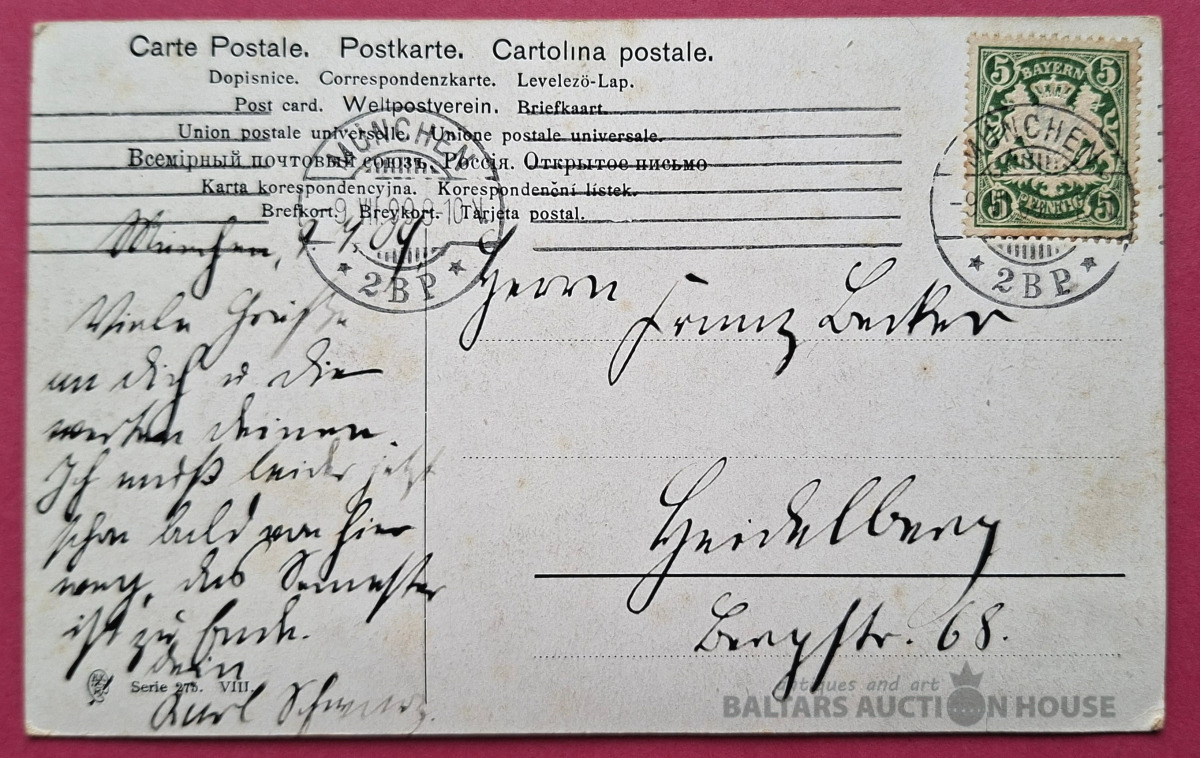 Carte Postale. Postkarte. Cartolina postale.
Dopisnice. Correspondenzkarte. Levelezö-Lap.
Post card. Weltpostverein. Briefkaart.
Union postale universelle. Unione postale universale.
Всемірный почтовый союзъ. Россія. Открытое письмо
Karta korespondencyjna. Korespondenční lístek.
Brefkort. Brevkort. Tarjeta postal.
BAYERN
5 5
5 PFENNIG 5
MÜNCHEN
2 B.P.
MÜNCHEN
2 B.P.
München,
Viele Grüße
an dich u die
werten deinen.
Ich muß leider jetzt
schon bald von hier
weg, das Semester
ist zu Ende.
Dein
Karl Schwarz.
Herrn
Franz Becker
Heidelberg
Bergstr. 68.
Serie 275. VIII.
antiques and art
BALTARS AUCTION HOUSE